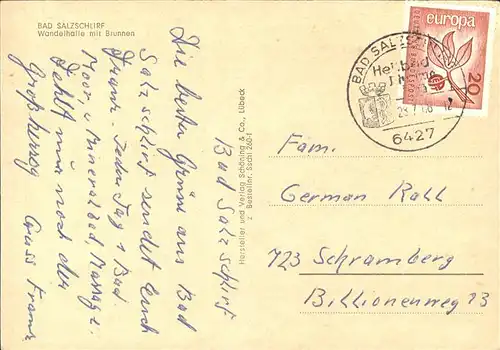 BAD SALZSCHLIRF
Wandelhalle mit Brunnen
Bad Salzschlirf
Die besten Grüsse aus Bad
Salzschlirf sendet Euch
Franz. Jeden Tag 1 Bad
Moor, u Mineralbad, Massage.
Fehlt nur noch der
Großherzog
Gruss Franz
Hersteller und Verlag Schöning & Co., Lübeck
Bestellnr. Sschl 260/1
BAD SALZSCHLIRF
Heilbad
6427
europa
20
DEUTSCHE BUNDESPOST
Fam.
German Rall
723 Schramberg
Billionenweg 23